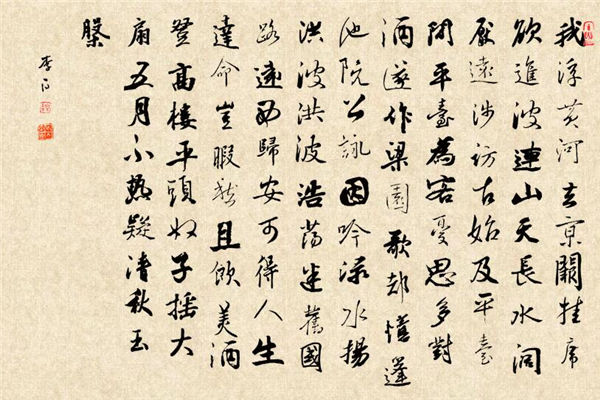 我浮黄河去京闕挂席
欲進波連山天長水闊
厭遠涉訪古始及平臺
間平臺為客憂思多對
酒遂作梁園歌却憶蓬
池阮公詠因吟渌水揚
洪波洪波浩蕩迷舊國
路遠西歸安可得人生
達命豈暇愁且飲美酒
登高樓平頭奴子摇大
扇五月不熱疑清秋玉
盤
李白